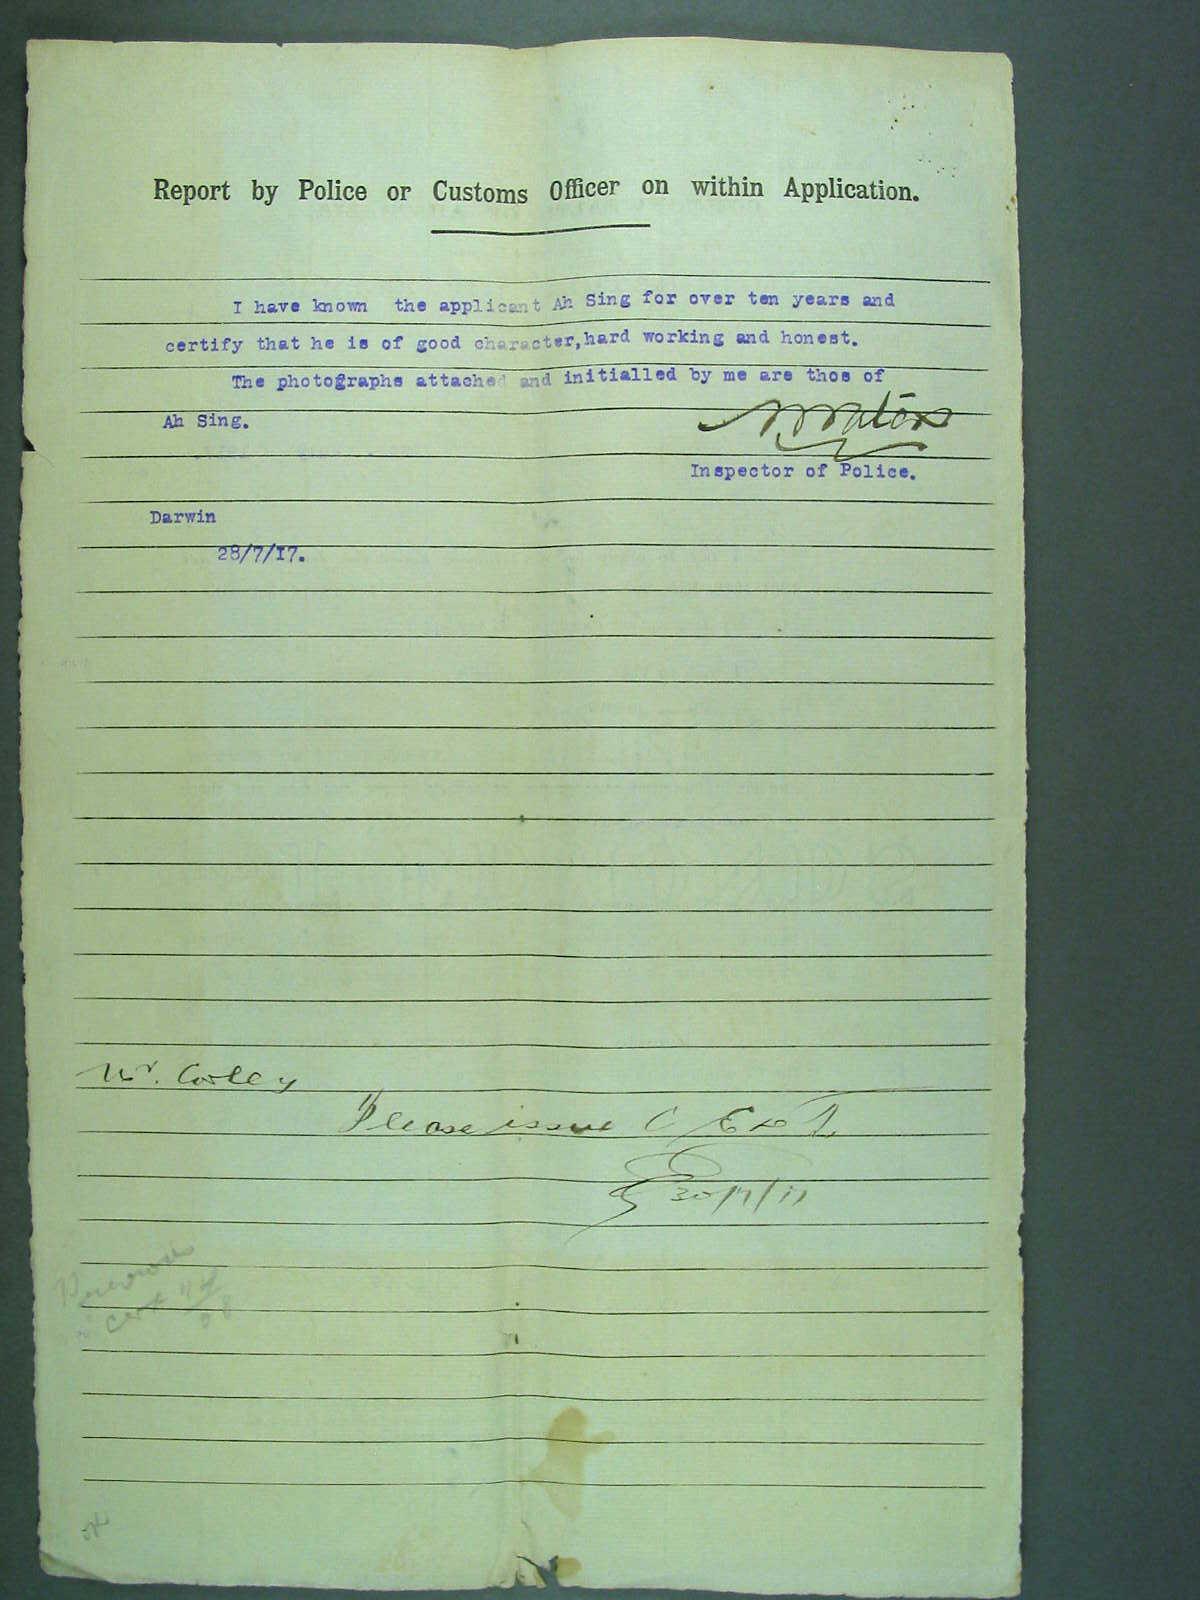 Report by Police or Customs Officer on within Application.
I have known the applicant Ah Sing for over ten years and
certify that he is of good character,hard working and honest.
The photographs attached and initialled by me are thos of
Ah Sing.
Inspector of Police.
Darwin
28/7/I7.
Mr. Corley
Please issue C E D T
30/7/17
Previous
Cert